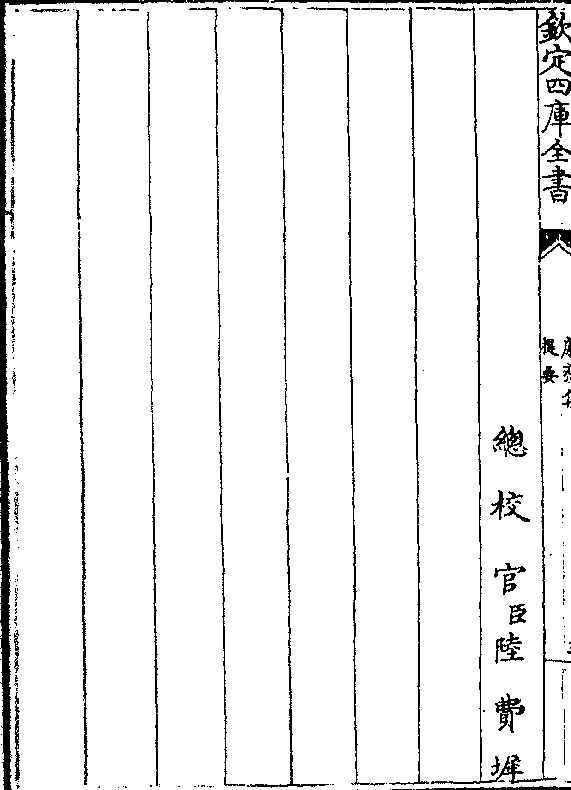 欽定四庫全書
提要
總校官臣陸費墀